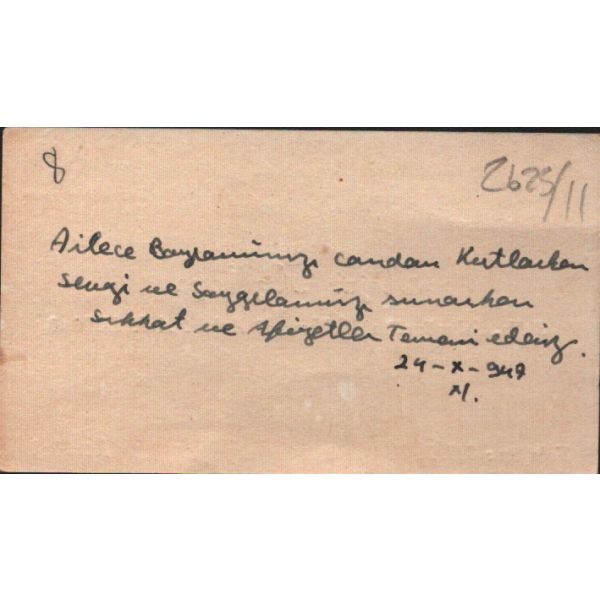 8
2625/11
Ailece Bayramınızı candan Kutlarken
sevgi ve Saygılarımızı sunarken
sıhhat ve Afiyetler Temeni ederiz.
24-X-947